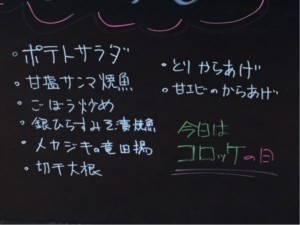 ・ポテトサラダ
・甘塩サンマ焼魚
・ごほう炒め
・銀ひらすみそ漬焼魚
・メカジキの竜田揚
・切干大根
・とりからあげ
・甘エビのからあげ
今日は
コロッケの日